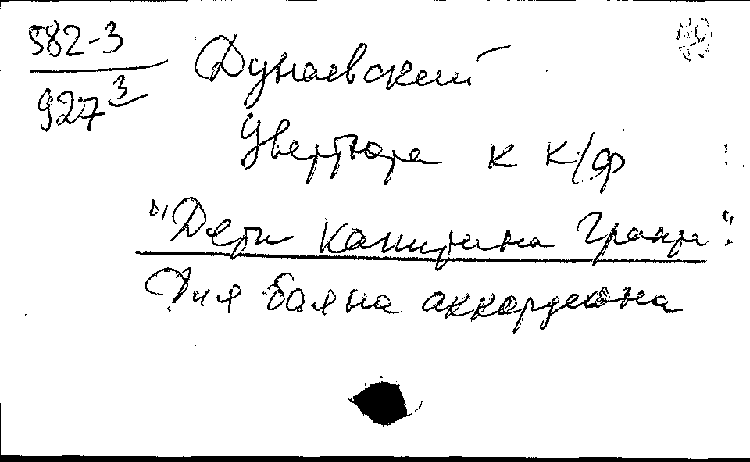 582-3
927 3
Дунаевский
Увертюра к к/ф
"Дети капитана Гранта".
Для баяна аккордеона